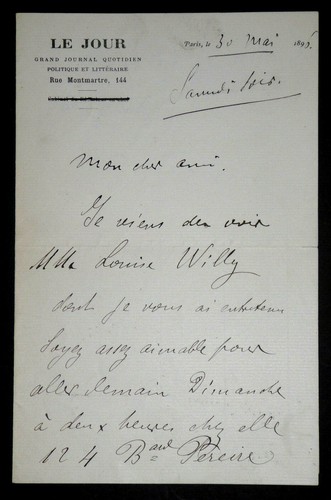 LE JOUR
GRAND JOURNAL QUOTIDIEN
POLITIQUE ET LITTÉRAIRE
Rue Montmartre, 144
Paris, le 30 Mai 189
Samedi soir.
Mon cher ami.
Je viens de voir
Mlle Louise Willy
dont je vous ai entretenu
Soyez assez aimable pour
aller demain Dimanche
à deux heures chez elle
124 Bard Pereire